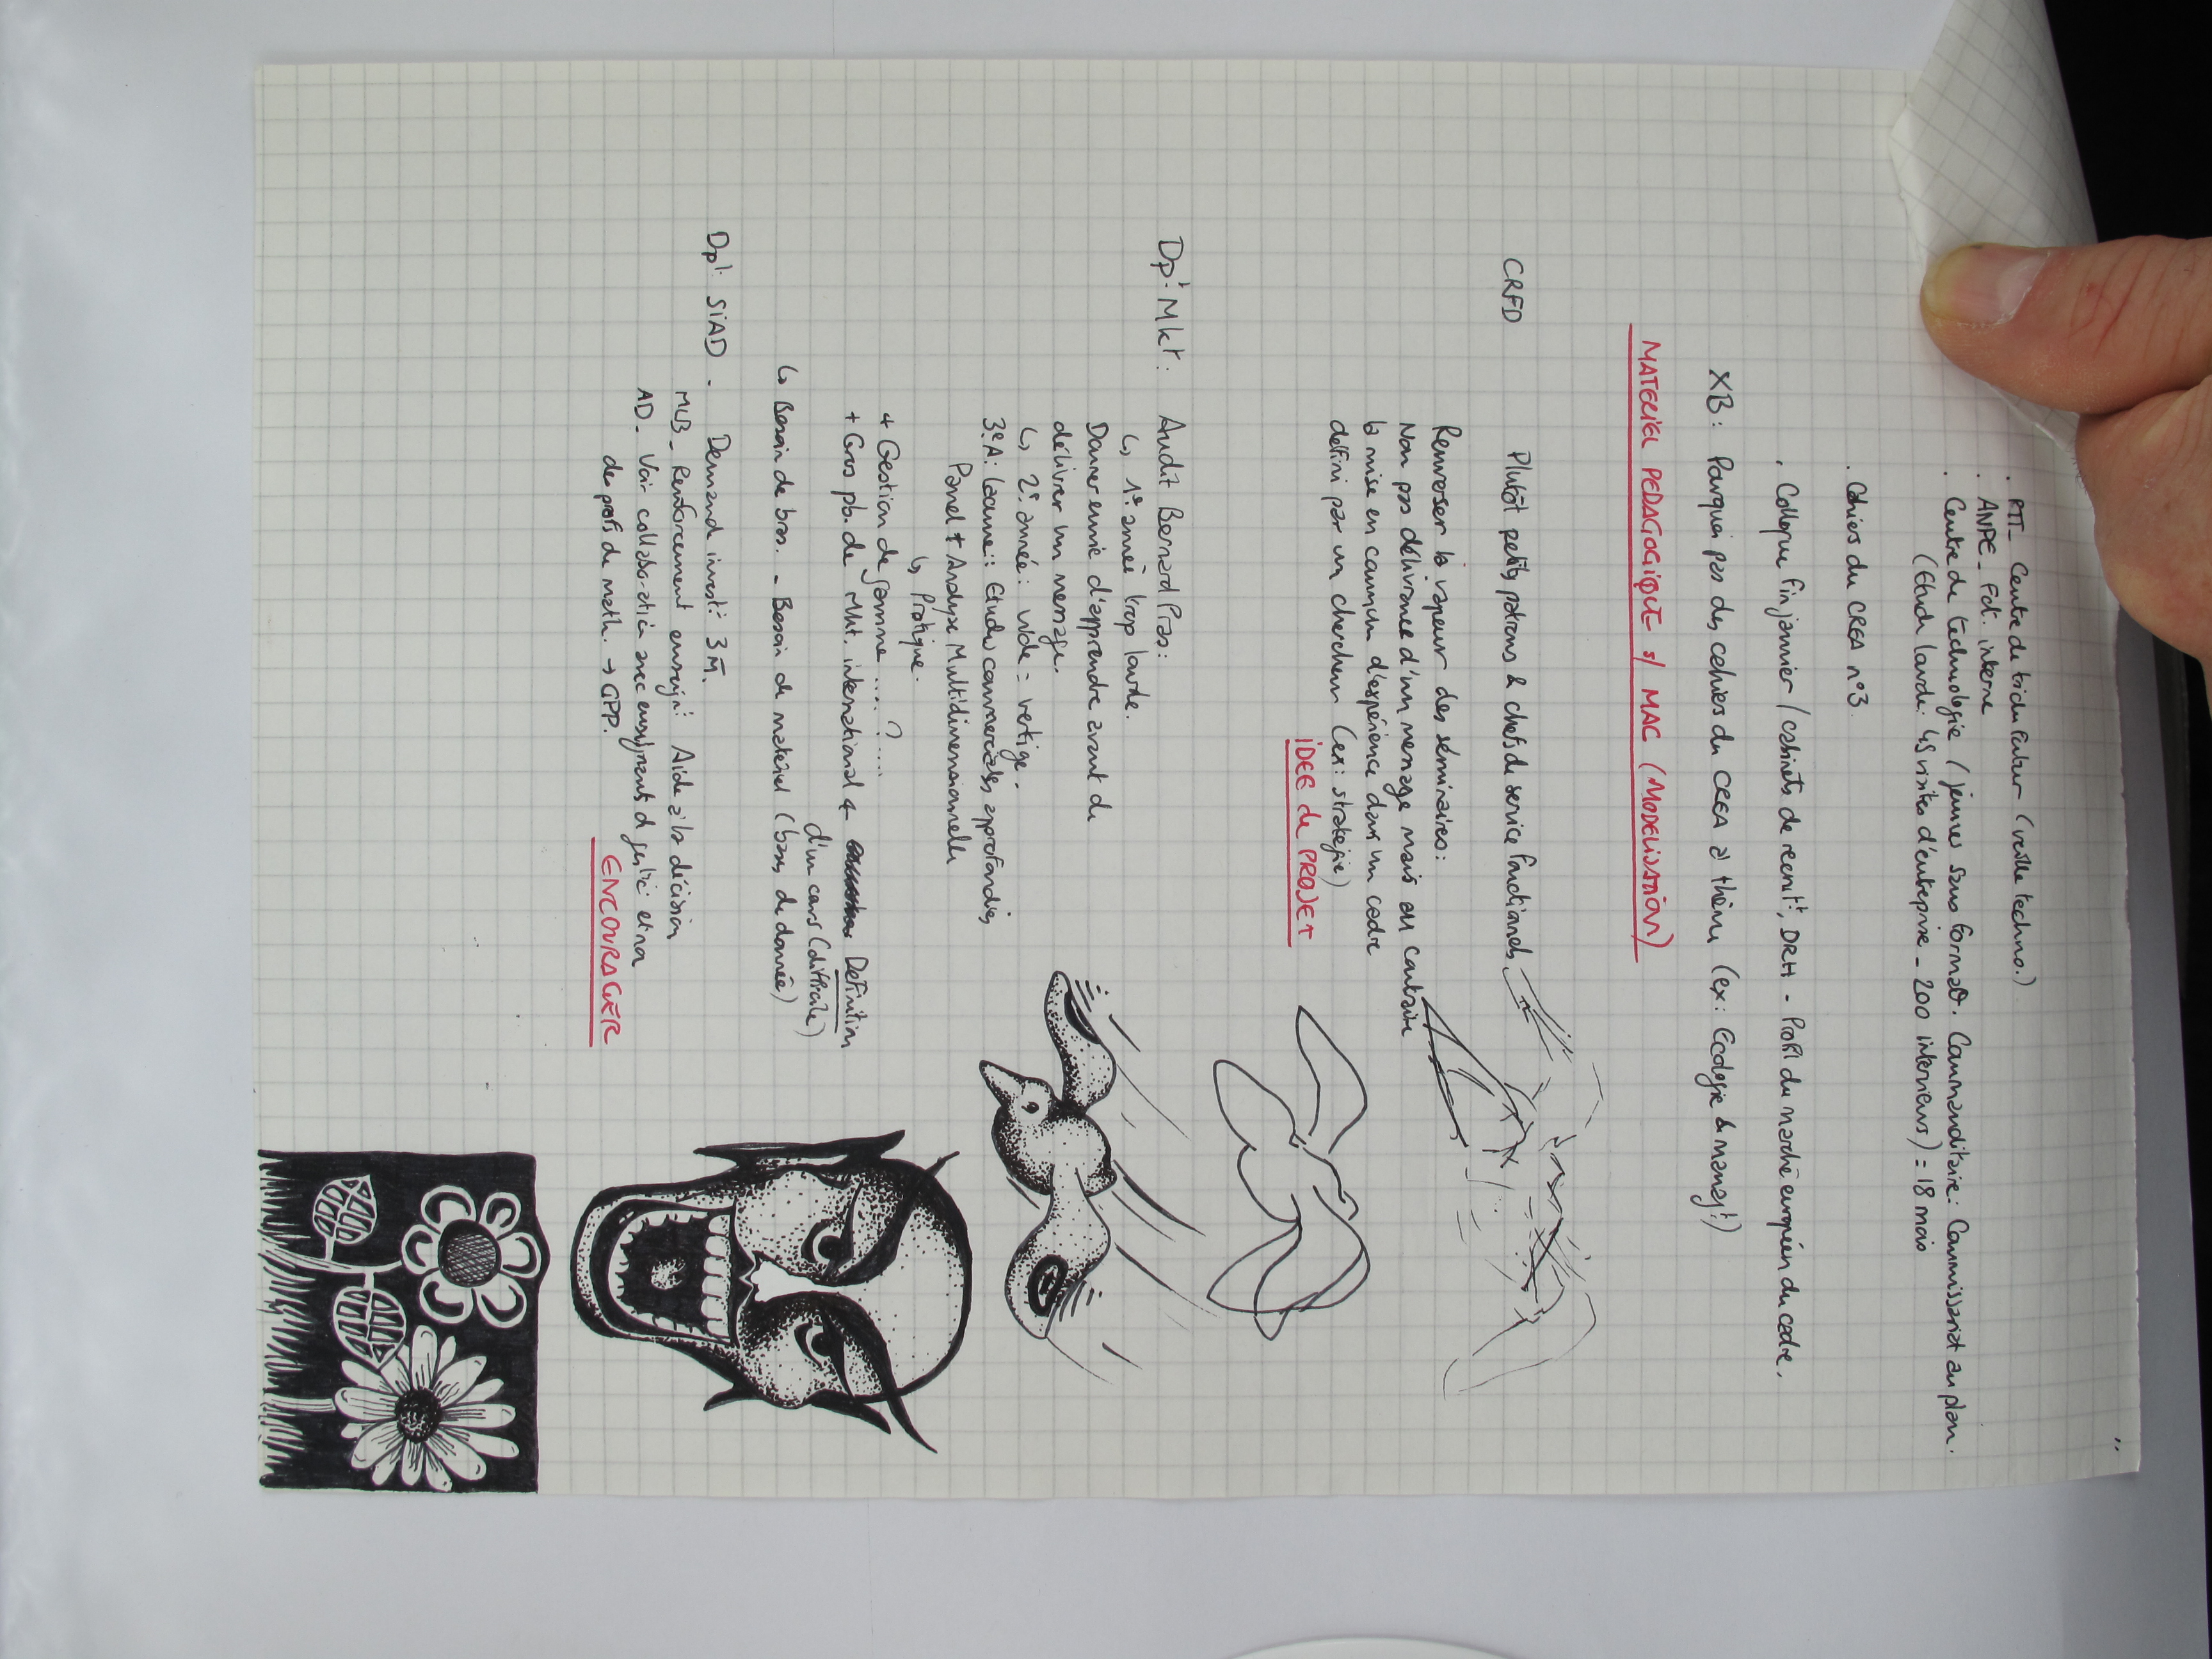 . PTT_ Centre de tri du futur (veille techno.)
. ANPE_ Fct. interne
. Centre de technologie (jeunes sans format°. Commanditaire: Commissariat au plan.
(Etude lourde: 45 visites d'entreprise _ 200 interviews) = 18 mois
. Cahiers du CREA n°3
. Colloque fin janvier / cabinets de recrutt, DRH - Profil du marché européen du cadre.
XB: Pourquoi pas des cahiers du CREA à thème (ex: Ecologie & managt)
MATERIEL PEDAGOGIQUE s/ MAC (MODELISATION)
CRFD Plutôt petits patrons & chefs de service fonctionnels
Renverser la vapeur des séminaires:
Non pas délivrance d'un message mais au contraire
la mise en commun d'expérience dans un cadre
défini par un chercheur (ex: stratégie)
IDEE de PROJET
Dpt Mkt: Audit Bernard Pras:
↳ 1e année trop lourde.
Donner envie d'apprendre avant de
délivrer un message.
↳ 2e année: vide = vertige.
3e A: lacune: Etudes commerciales approfondies
Panel + Analyse Multidimensionnelle
↳ Pratique.
+ Gestion de gamme .... ? ....
+ Gros pb. de Mkt. international Definition
d'un cours (difficile)
↳ Besoin de bras. _ Besoin de matériel (bases de donnée)
Dpt SIAD - Demande investt 3 M.
MUB_ Renforcement enseignt Aide à la décision
AD_ Voir collaboration avec enseignants d gestio et na
des profs de math. → GPP.
ENCOURAGER